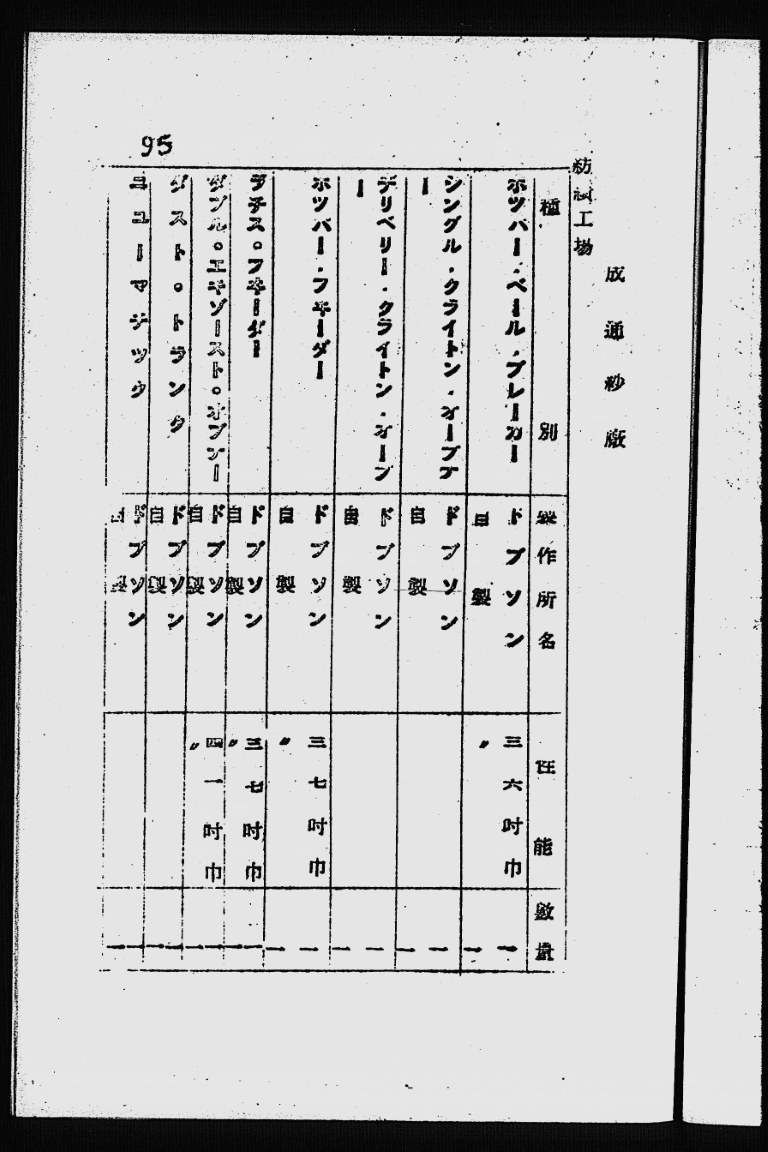 95
成通紗廠
紡績工場
種別
製作所名
性能
數量
ホツパー・ベール・ブレーカー
ドブソン
自製
三六吋巾
〃
一
一
シングル・クライトン・オープナー
ドブソン
自製
一
一
デリベリー・クライトン・オープナー
ドブソン
自製
一
一
ホツパー・フヰーダー
ドブソン
自製
三七吋巾
〃
一
一
ラチス。フヰーダー
ドブソン
自製
三七吋巾
〃
一
一
ダブル。エキゾースト。オプナー
ドブソン
自製
四一吋巾
〃
一
一
ダスト。トランク
ドブソン
自製
一
一
ニューマチツク
ドブソン
自製
一
一